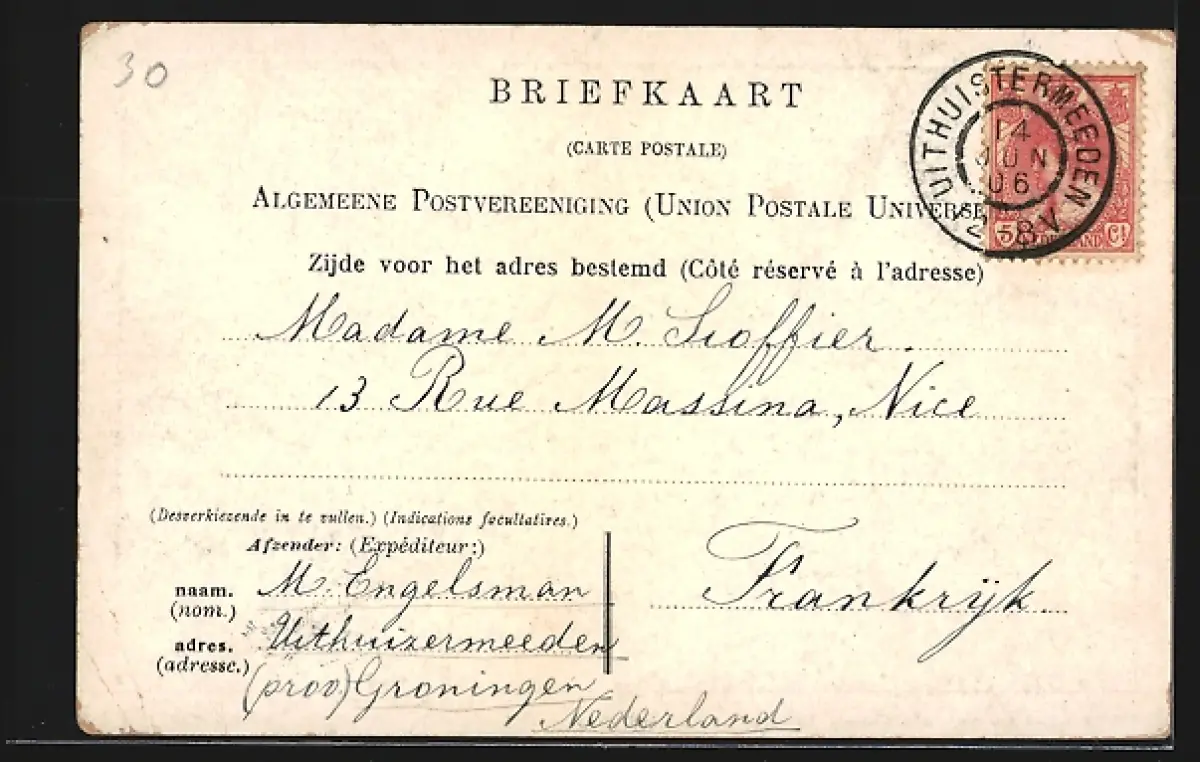 30
BRIEFKAART
(CARTE POSTALE)
ALGEMEENE POSTVEREENIGING (UNION POSTALE UNIVERSE
Zijde voor het adres bestemd (Côté réservé à l'adresse)
UITHUISTERMEEDEN
14
JUN
06
12-8V
5 Ct
Madame M. Sioffier.
13 Rue Massina, Nice
Frankrijk.
(Desverkiezende in te vullen.) (Indications facultatives.)
Afzender: (Expéditeur:)
naam. M. Engelsman
(nom.)
adres. Uithuizermeeden
(adresse.) (prov) Groningen
Nederland